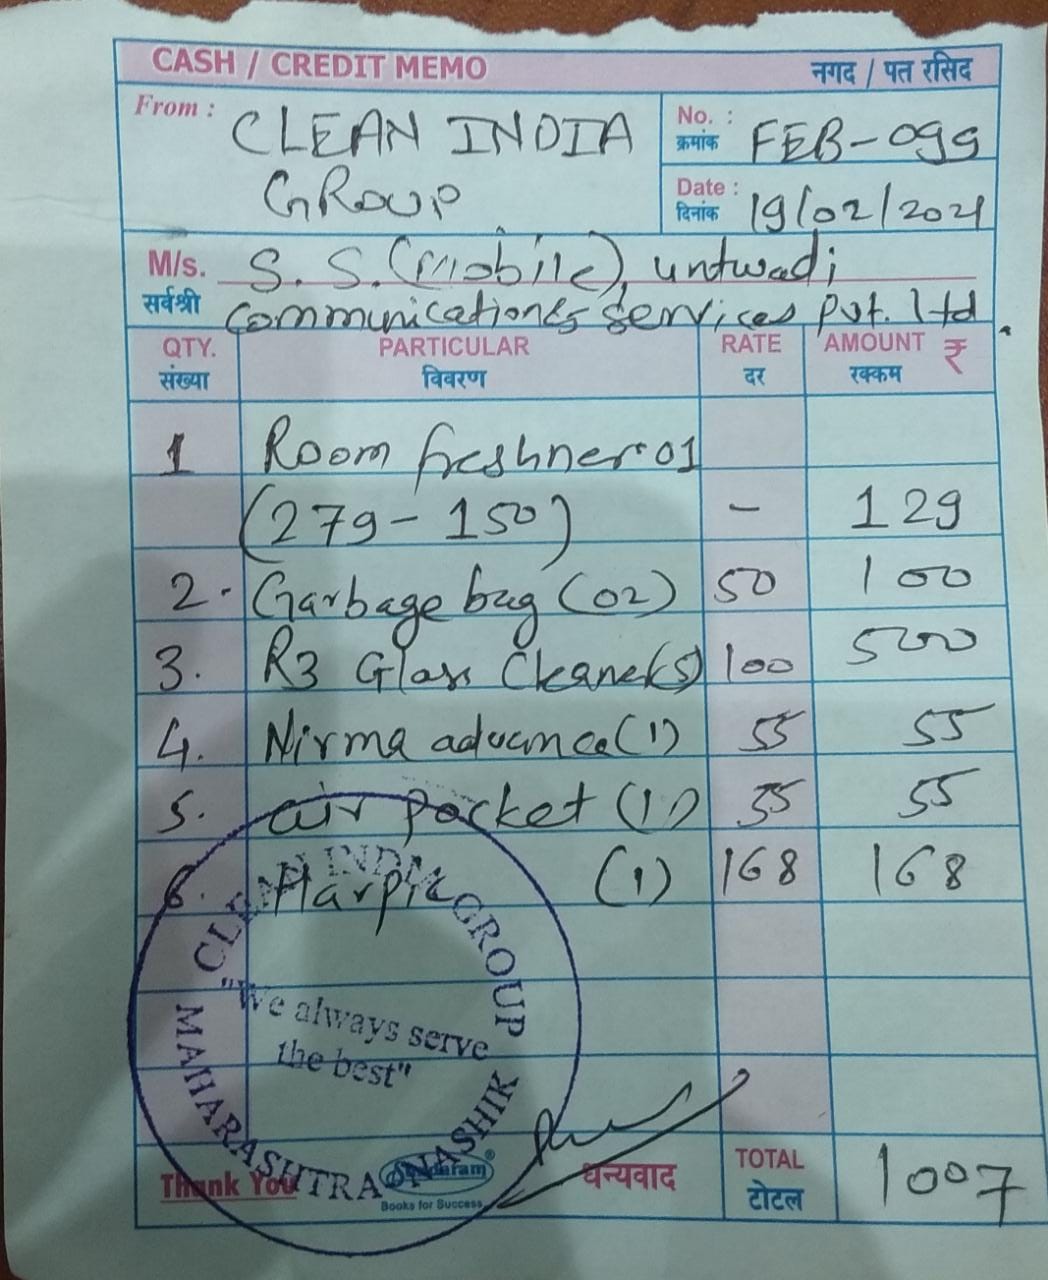 CASH / CREDIT MEMO
नगद / पत रसिद
From :
CLEAN INDIA
GROUP
No. :
क्रमांक
FEB-099
Date :
दिनांक
19/02/2021
M/s.
सर्वश्री
S. S. (Mobile), untwadi
Communications services Pvt. ltd.
QTY. PARTICULAR RATE AMOUNT ₹
संख्या विवरण दर रक्कम
1 Room freshner 01
(279-150) - 129
2. Garbage bag (02) 50 100
3. R3 Glass Cleaner(5) 100 500
4. Nirma advance (1) 55 55
5. air pocket (1) 55 55
6. Harpic (1) 168 168
CLEAN INDIA GROUP
"We always serve
the best"
MAHARASHTRA NASHIK
Thank You
Books for Success
धन्यवाद
TOTAL
टोटल
1007